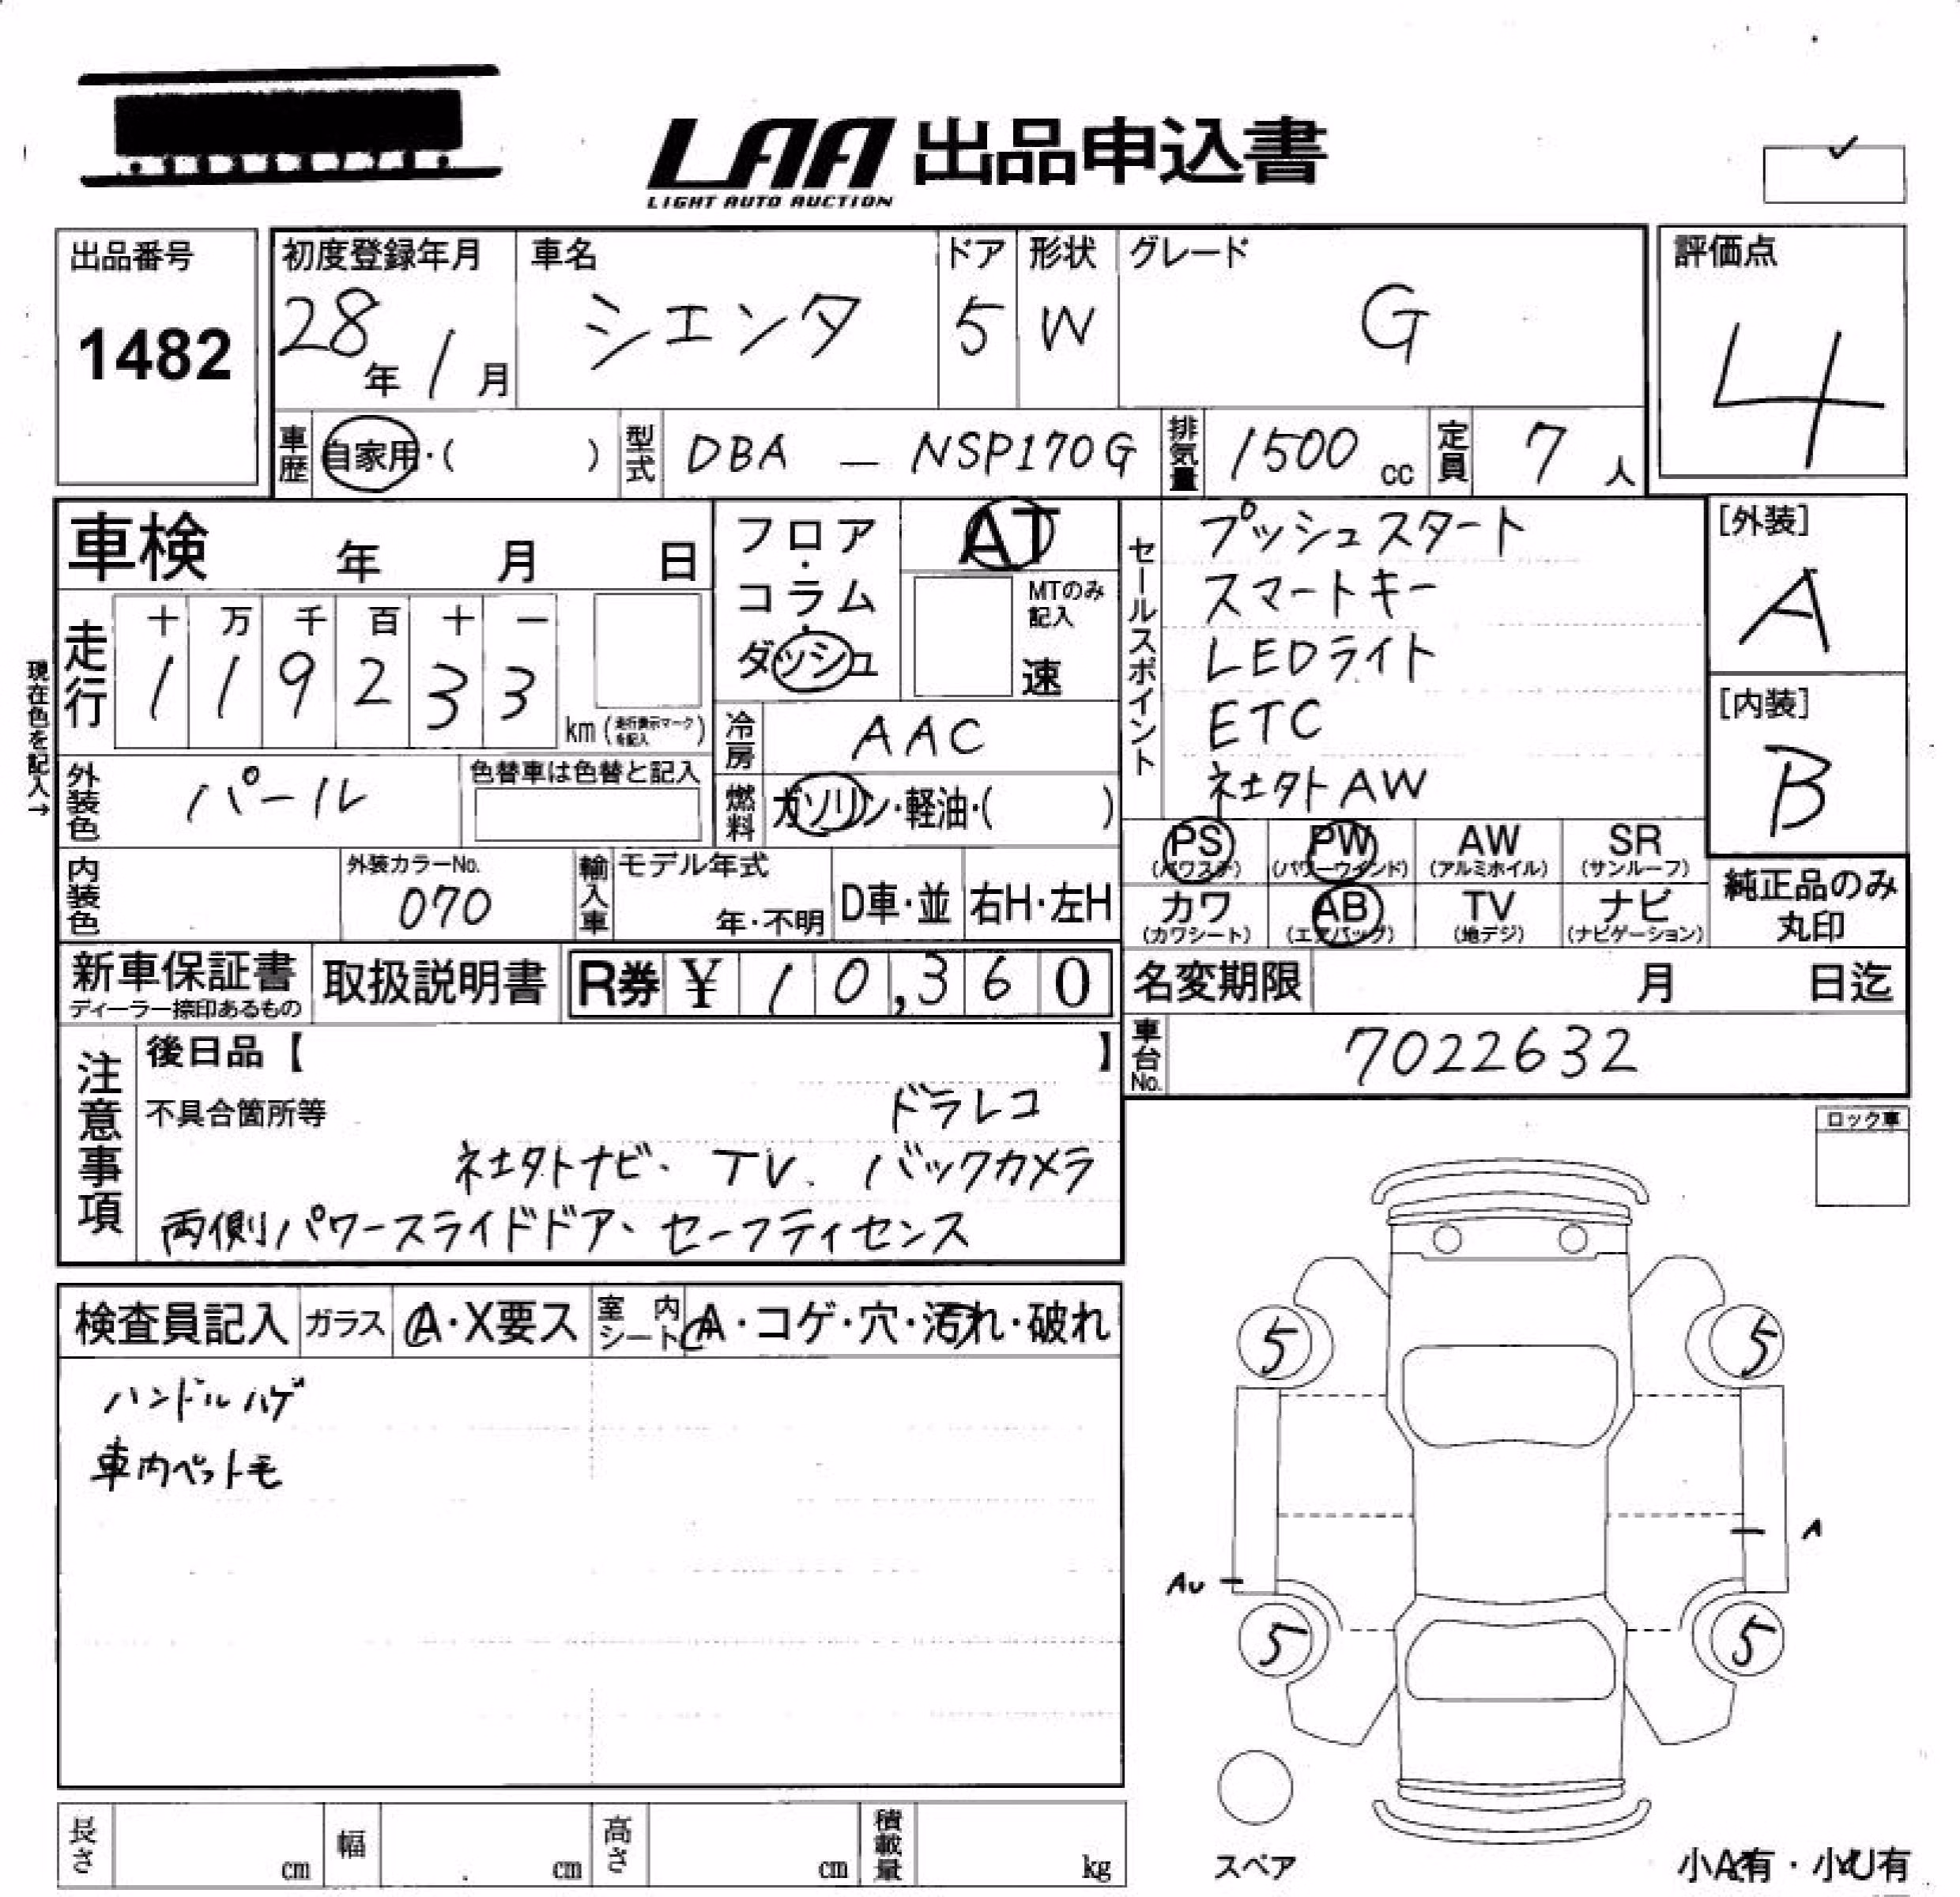 LAA 出品申込書
LIGHT AUTO AUCTION
出品番号
1482
初度登録年月
28年 1月
車名
シエンタ
ドア
5
形状
W
グレード
G
評価点
4
車歴
自家用・( )
型式
DBA - NSP170G
排気量
1500 cc
定員
7人
車検 年 月 日
フロア・コラム・ダッシュ
AT
MTのみ記入
速
現在色を記入→
走行
十 万 千 百 十 一
1 1 9 2 3 3
km(走行表示マークを記入)
冷房
AAC
外装色
パール
色替車は色替と記入
燃料
ガソリン・軽油・( )
内装色
外装カラーNo.
070
輸入車
モデル年式
年・不明
D車・並
右H・左H
セールスポイント
プッシュスタート
スマートキー
LEDライト
ETC
社外AW
[外装]
A
[内装]
B
PS (パワステ)
PW (パワーウインド)
AW (アルミホイル)
SR (サンルーフ)
カワ (カワシート)
AB (エアバッグ)
TV (地デジ)
ナビ (ナビゲーション)
純正品のみ丸印
新車保証書
ディーラー捺印あるもの
取扱説明書
R券 ¥ 10,360
名変期限 月 日迄
車台No.
7022632
注意事項
後日品【 】
不具合箇所等
ドラレコ
社外ナビ、TV、バックカメラ
両側パワースライドドア、セーフティセンス
ロック車
検査員記入
ガラス
A・X要ス
室内シート
A・コゲ・穴・汚れ・破れ
ハンドルハゲ
車内ペット毛
5
5
A
AU
5
5
スペア
長さ cm
幅 cm
高さ cm
積載量 kg
小A有・小U有